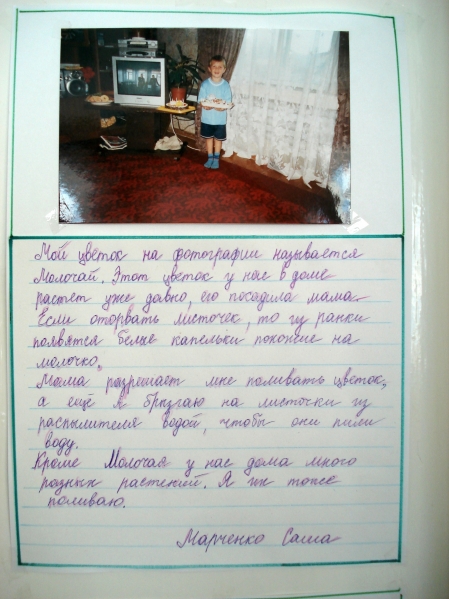 Мой цветок на фотографии называется
Молочай. Этот цветок у нас в доме
растет уже давно, его посадила мама.
Если оторвать листочек, то из ранки
появятся белые капельки похожие на
молочко.
Мама разрешает мне поливать цветок,
а ещё я брызгаю на листочки из
распылителя водой, чтобы они пили
воду.
Кроме Молочая у нас дома много
разных растений. Я их тоже
поливаю.
Марченко Саша